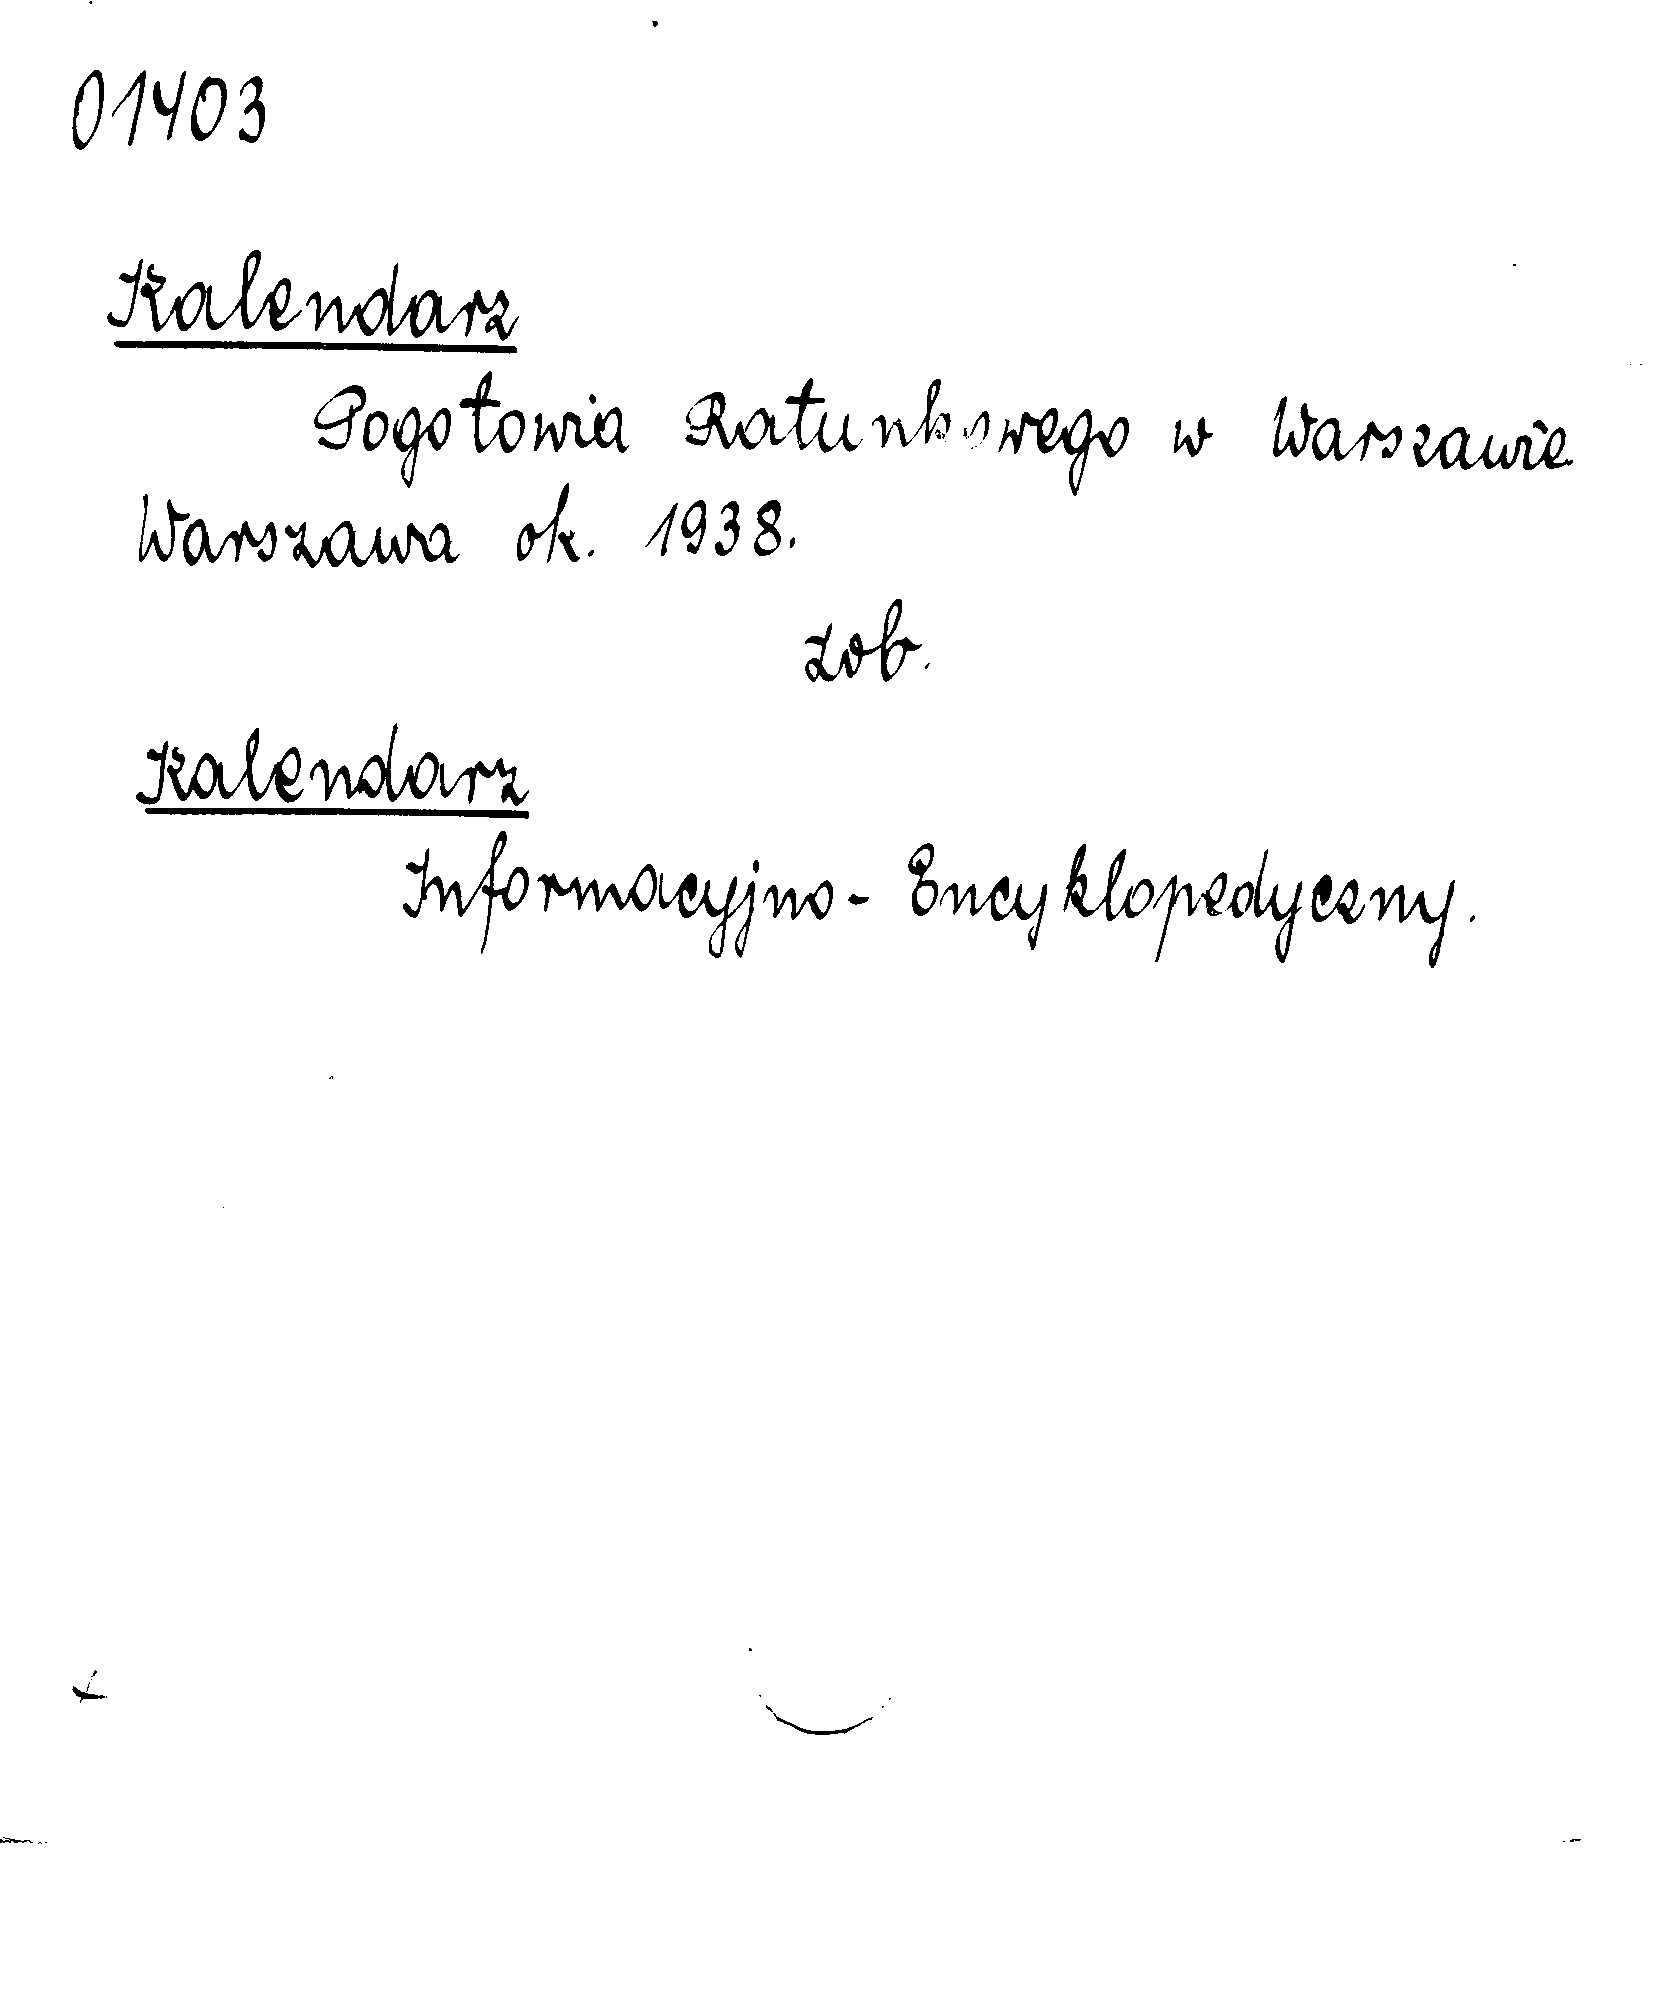 01403
Kalendarz
Pogotowia Ratunkowego w Warszawie
Warszawa ok. 1938.
zob.
Kalendarz
Informacyjno - Encyklopedyczny.